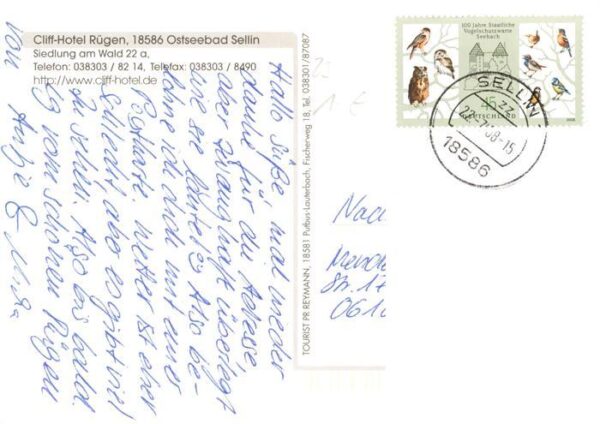 Cliff-Hotel Rügen, 18586 Ostseebad Sellin
Siedlung am Wald 22 a,
Telefon: 038303 / 82 14, Telefax: 038303 / 8490
http://www.cliff-hotel.de
Hallo Süße, mal wieder
danke für die Adresse,
aber zwanghaft überlegt
Also be-
lohne ich dich mit einer
Postkarte. Wetter ist eher
schlecht, aber es gibt viel
zu sehen. Also bis bald
LG vom schönen Rügen
von Antje &
TOURIST PR REYMANN, 18581 Putbus-Lauterbach, Fischerweg 18, Tel. 038301/87087
100 Jahre Staatliche
Vogelschutzwarte
Seebach
45
DEUTSCHLAND
2008
SELLIN
zz
08-15
18586
Str. 17